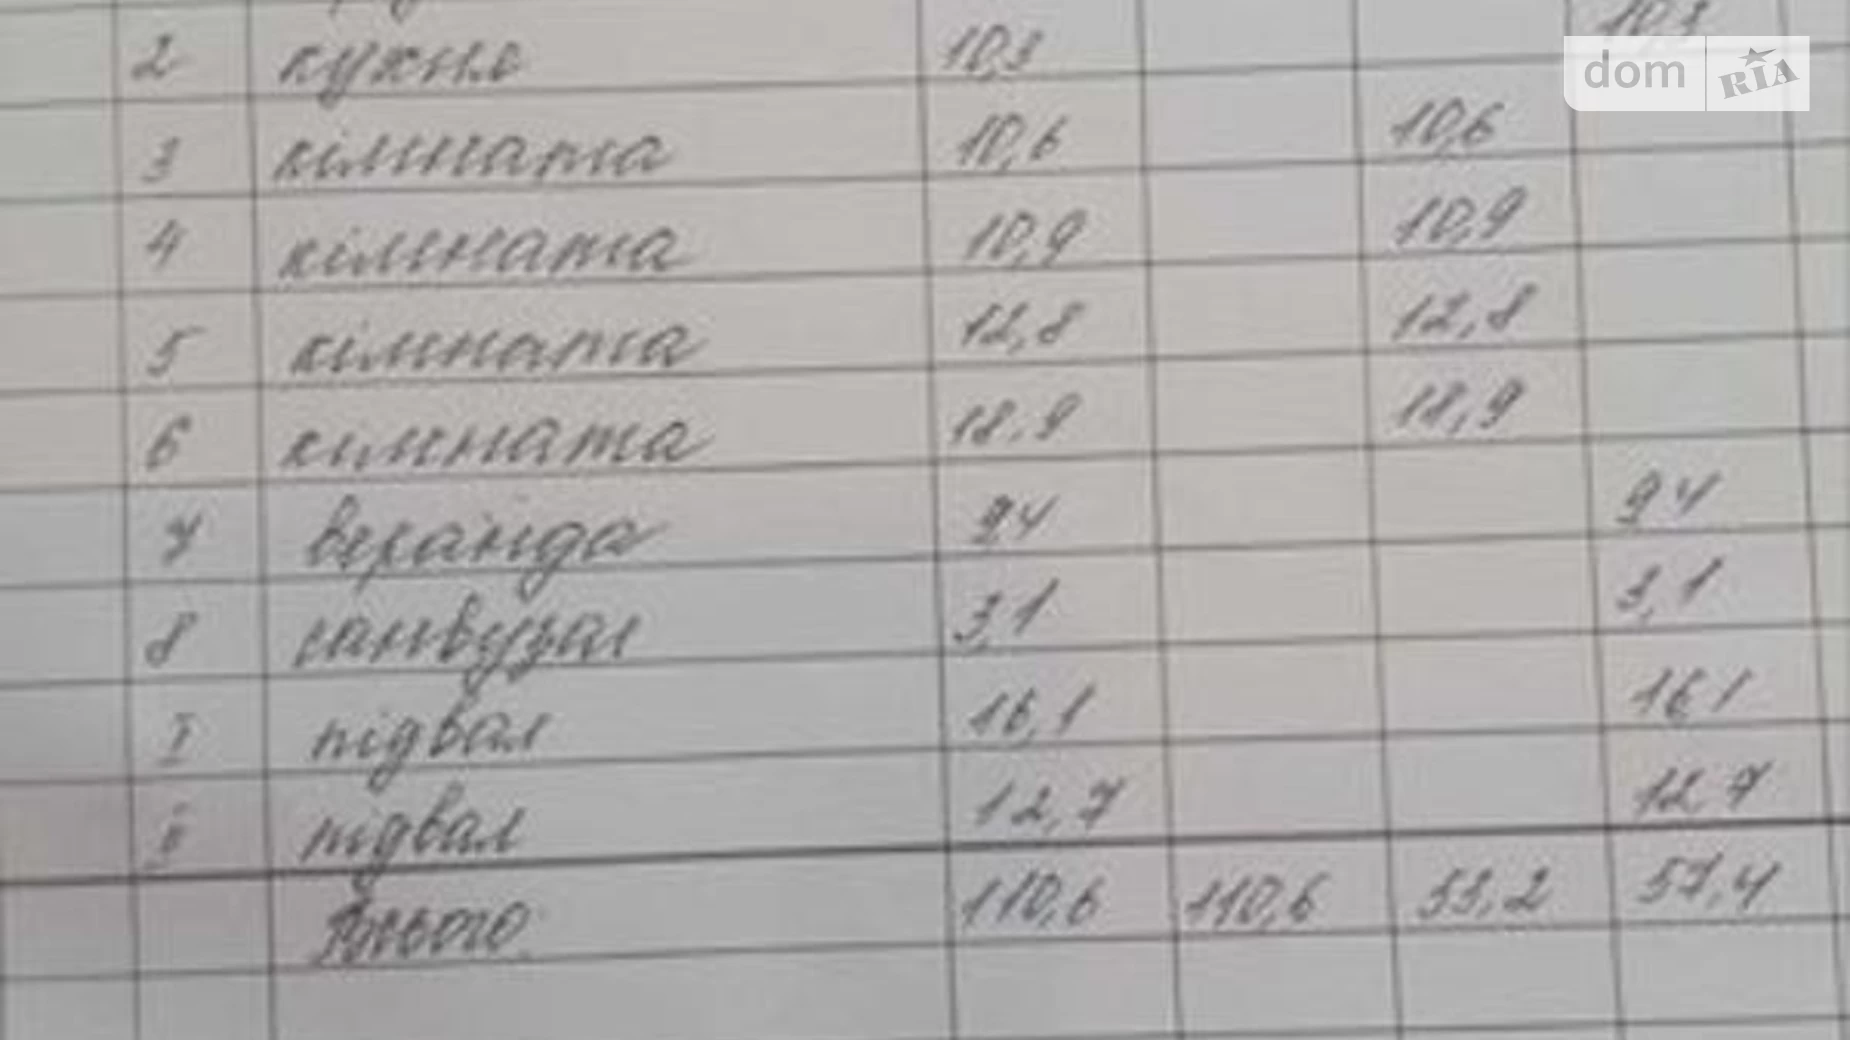 10,3
dom RIA
2 кухня 10,3
3 кімната 10,6 10,6
4 кімната 10,9 10,9
5 кімната 12,8 12,8
6 кімната 18,9 18,9
7 веранда 9,4 9,4
8 санвузол 3,1 3,1
I підвал 16,1 16,1
II підвал 12,7 12,7
Усього 110,6 110,6 53,2 57,4